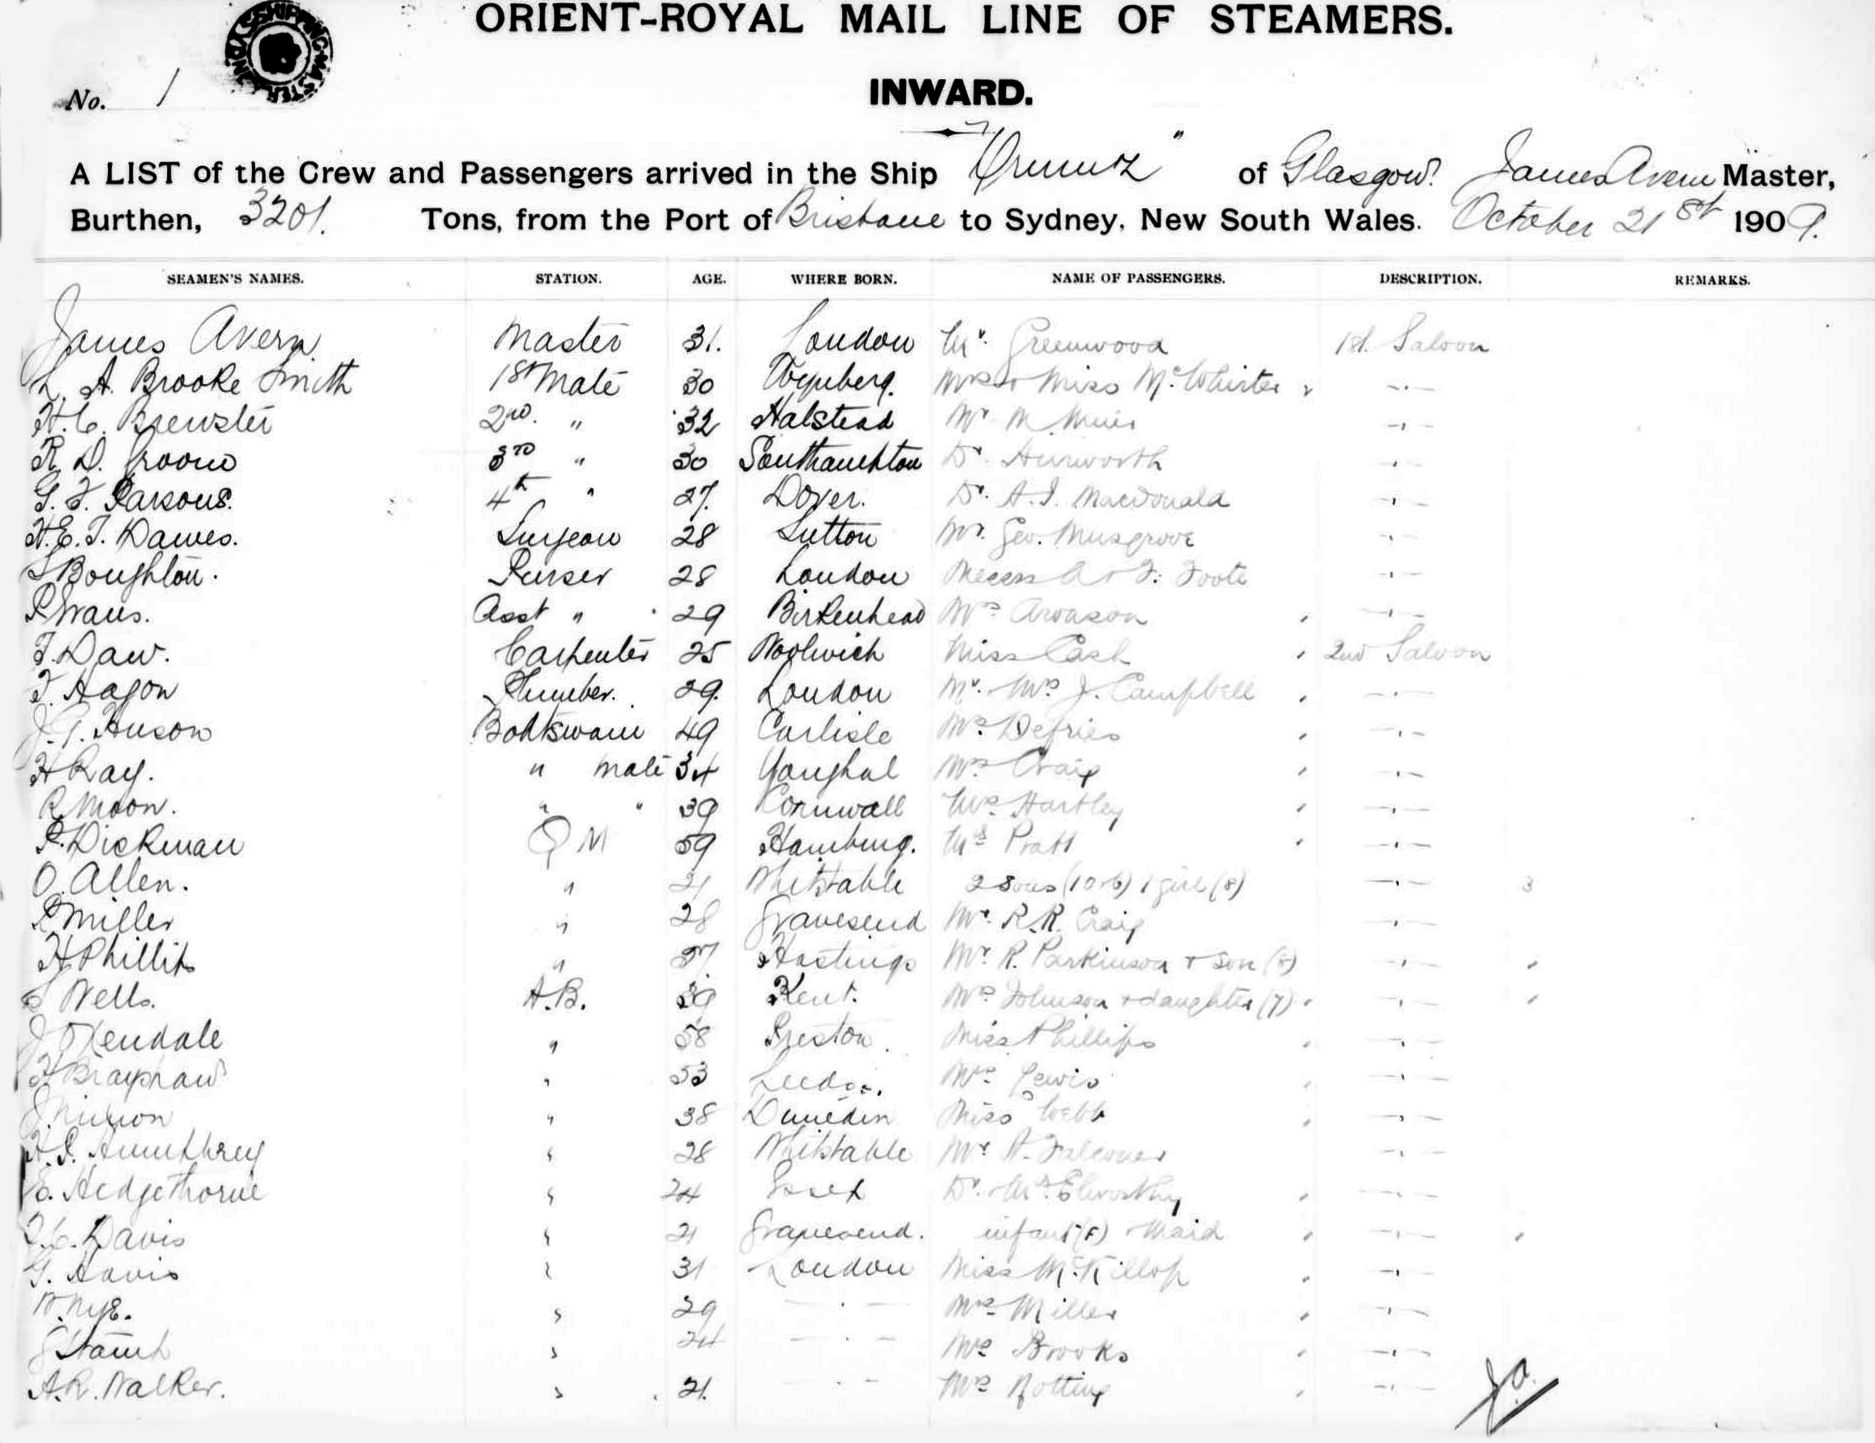 ORIENT-ROYAL MAIL LINE OF STEAMERS.
SHIPPING MASTER SYDNEY
No. 1
INWARD.
A LIST of the Crew and Passengers arrived in the Ship "Ormuz" of Glasgow. James Avern Master,
Burthen, 3201. Tons, from the Port of Brisbane to Sydney, New South Wales. October 21st 1909.
SEAMEN'S NAMES. STATION. AGE. WHERE BORN. NAME OF PASSENGERS. DESCRIPTION. REMARKS.
James Avern Master 31. London Mr. Greenwood 1st. Saloon
A. Brooke Smith 1st Mate 30 Wynberg. Mrs + Miss McWhirter " —"—
H.C. Brewster 2nd. " 32 Halstead Mr M. Muir —"—
R. D. Groom 3rd " 30 Southampton Dr. —"—
G. F. Parsons. 4th " 27. Dover. Dr. A. I. MacDonald —"—
H.E.T. Dawes. Surgeon 28 Sutton Mr. Geo. Musgrove —"—
Boughton. Purser 28 London A + F. Foote —"—
Evans. Asst " 29 Birkenhead Mrs Aronson —"—
F. Daw. Carpenter 25 Woolwich Miss Cash 2nd Saloon
F. Hagon Plumber. 29. London Mr. Mrs J. Campbell —"—
Huson Boatswain 49 Carlisle Mrs Defries —"—
H Ray. " mate 34 Youghal Mrs Craig —"—
R Moon. " " 39 Cornwall Mrs Hartley —"—
P. Dickman Q M 59 Hamburg. Mrs Pratt —"—
O. Allen. " 21 Whitstable 2 sons (10+6) 1 girl (8) —"— 3
Miller " 28 Gravesend Mr. R.R. Craig —"—
H Phillips " 27 Hastings Mr. R. Parkinson + son —"— "
Wells. A.B. 39 Kent. Mrs Johnson + daughter (7) —"— "
Kendale " 58 Preston. Miss Phillips —"—
H Brayshaw " 53 Leeds. Mrs Lewis —"—
" 38 Dunedin Miss Webb —"—
H.P. Humphrey " 28 Whitstable Mr A. Falconer —"—
E. Hedgethorne " 24 Essex Dr. Mrs Elworthy —"—
Davis " 21 Gravesend. infant (F) + Maid —"— "
G. Davis " 31 London Miss McKillop —"—
W. Nye. " 29 —"— Mrs Miller —"—
Stamp " 24 —"— Mrs Brooks —"—
A.R. Walker. " 21. —"— Mrs Notting —"—